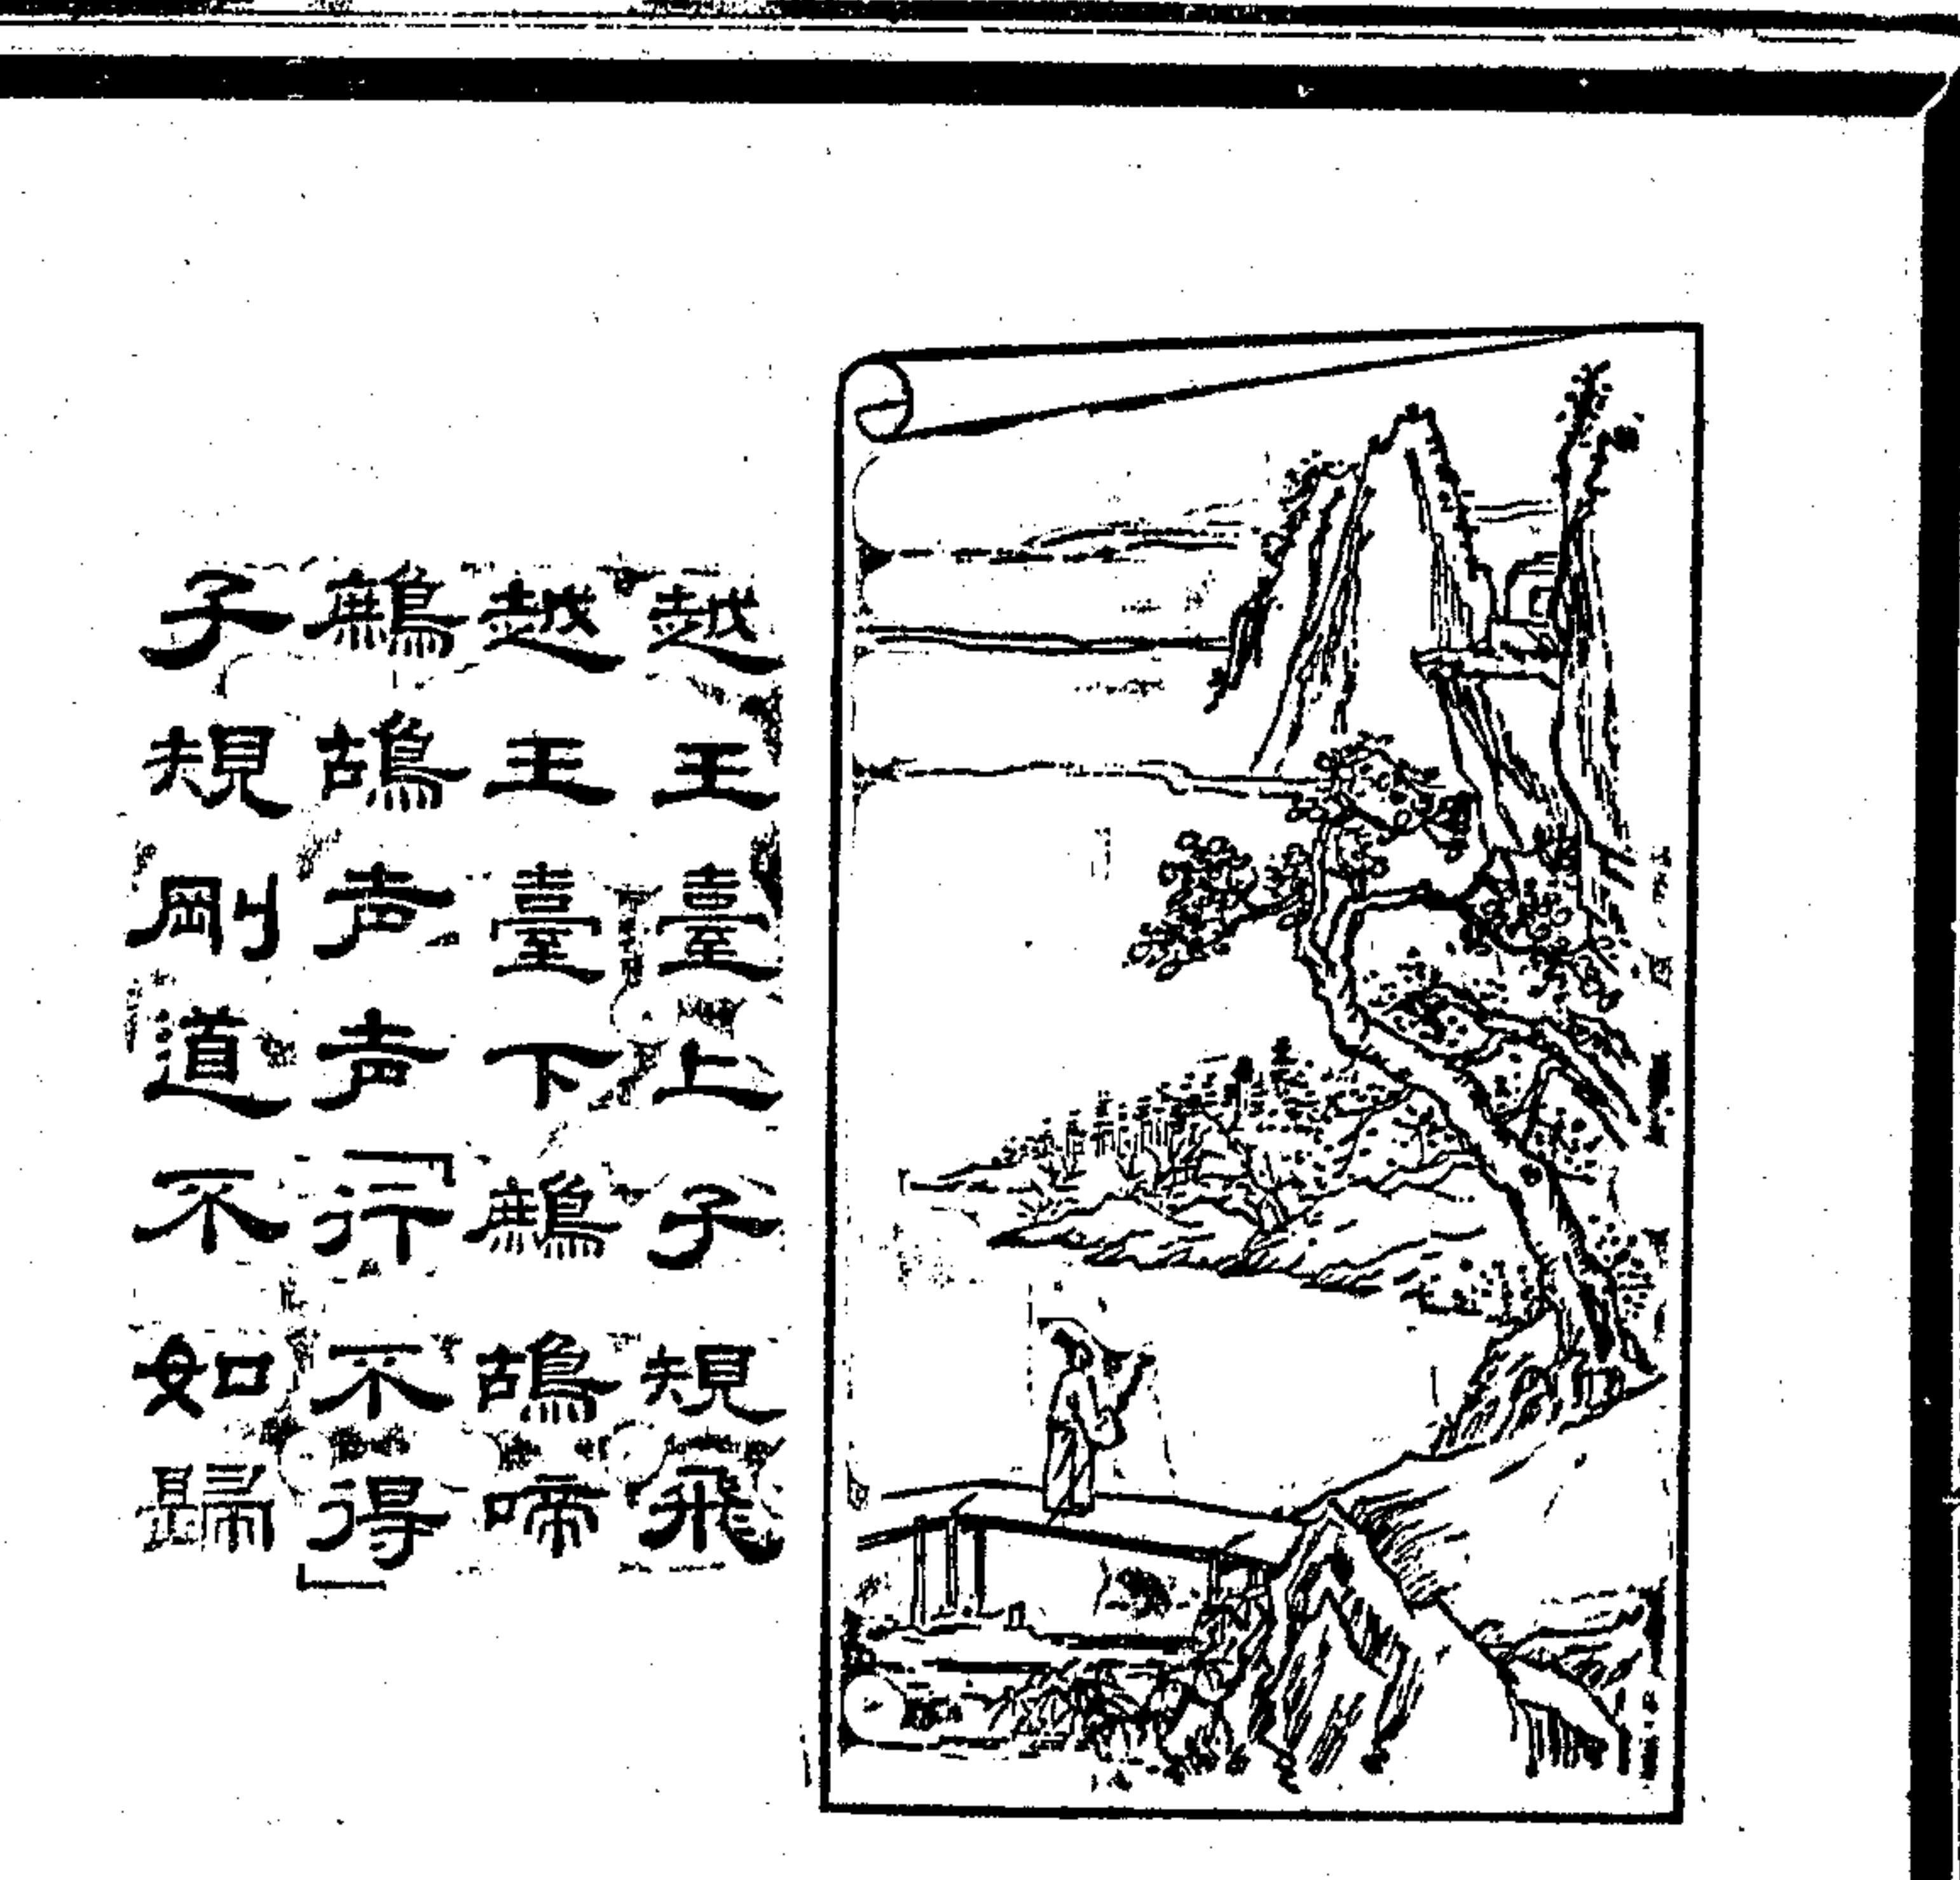 越王臺上子規飛
越王臺下鷓鴣啼
鷓鴣声声「行不得」
子規剛道不如歸